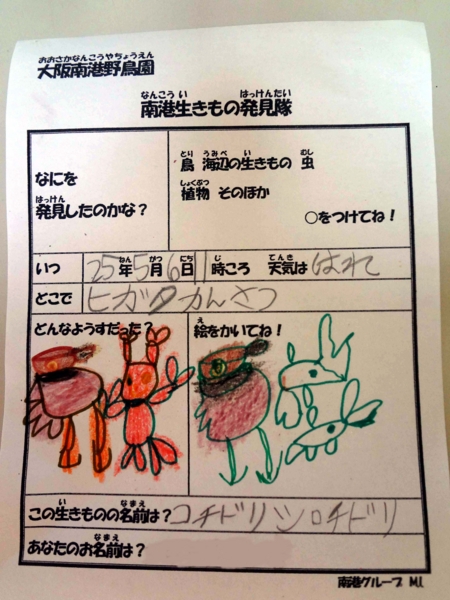 おおさかなんこうやちょうえん
大阪南港野鳥園
なんこう い はっけんたい
南港生きもの発見隊
なにを
はっけん
発見したのかな？
とり うみべ い むし
鳥 海辺の生きもの 虫
しょくぶつ
植物 そのほか
○をつけてね！
ねん がつ にち じ てんき
いつ 25年5月6日11時ころ 天気は はれて
どこで ヒガタかんさつ
どんなようすだった？
え
絵をかいてね！
い なまえ
この生きものの名前は？コチドリシロチドリ
なまえ
あなたのお名前は？
南港グループ M.I.